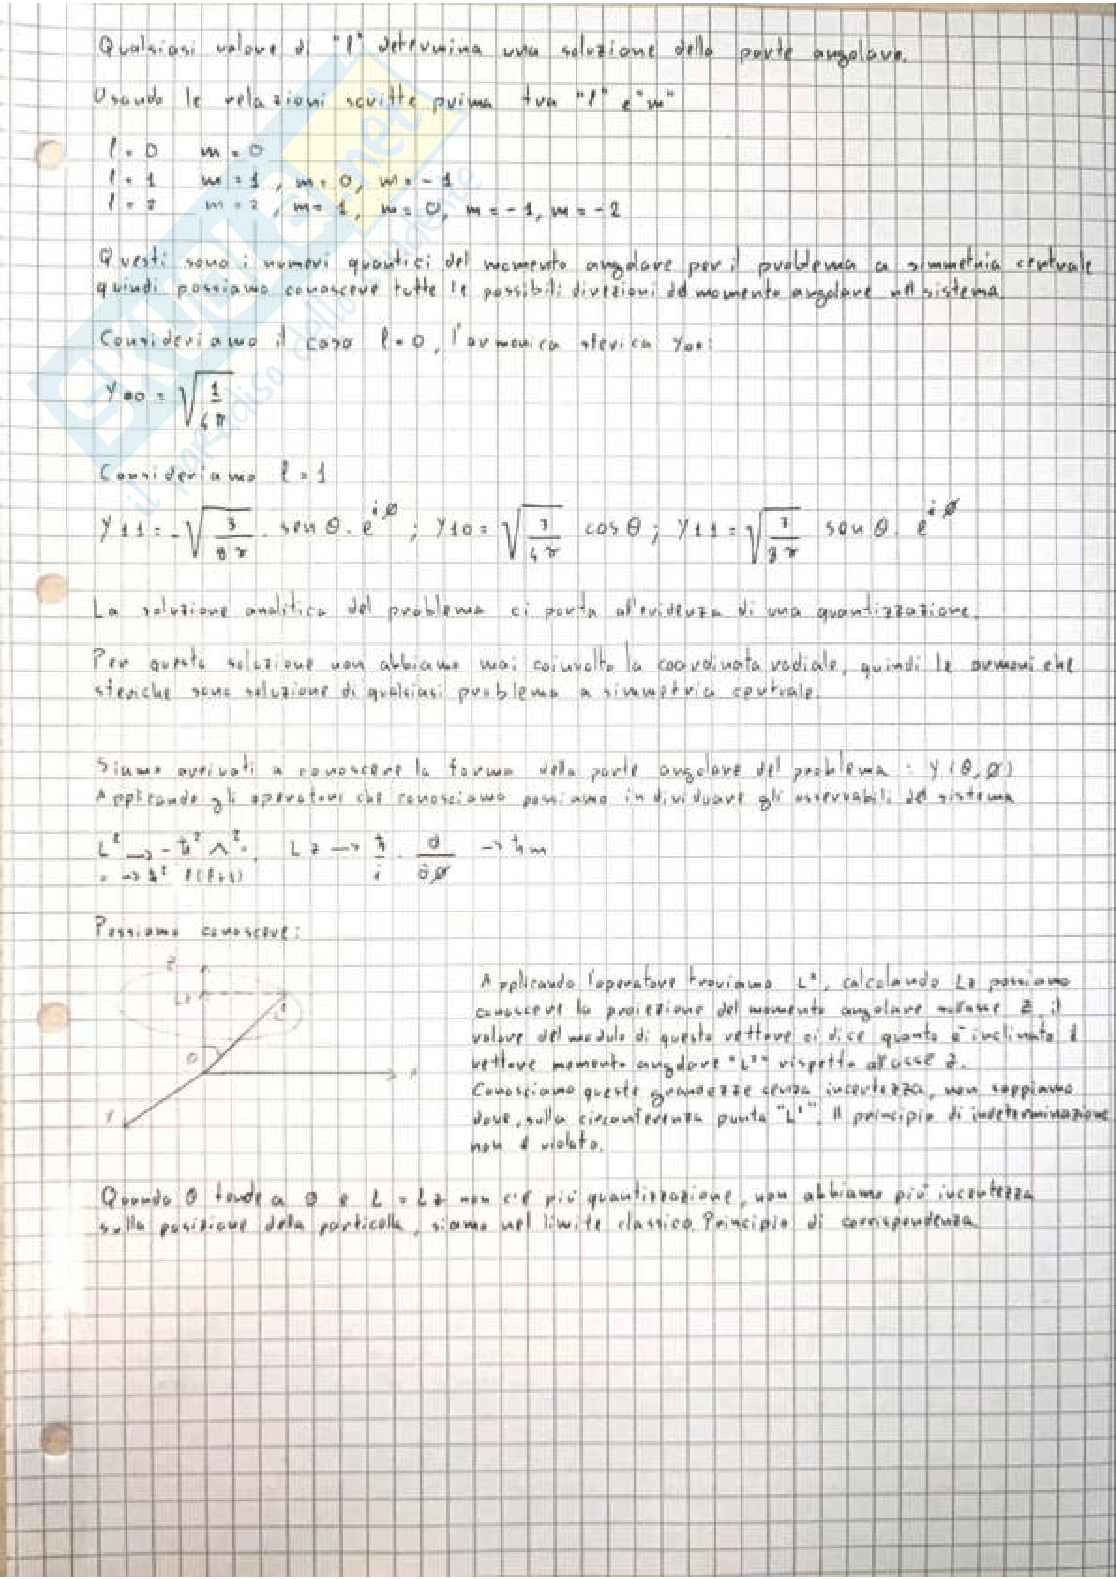 Qualsiasi valore di "l" determina una soluzione della parte angolare.
Usando le relazioni scritte prima tra "l" e "m"
l = 0 m = 0
l = 1 m = 1, m = 0, m = -1
l = 2 m = 2, m = 1, m = 0, m = -1, m = -2
Questi sono i numeri quantici del momento angolare per il problema a simmetria centrale
quindi possiamo conoscere tutte le possibili direzioni del momento angolare nel sistema
Consideriamo il caso l = 0, l'armonica sferica Y00:
Y00 = √(1/4π)
Consideriamo l = 1
Y11 = -√(3/8π) · sen θ · e^iØ ; Y10 = √(3/4π) cos θ ; Y11 = √(3/8π) sen θ · e^iØ
La soluzione analitica del problema ci porta all'evidenza di una quantizzazione.
Per questa soluzione non abbiamo mai coinvolto la coordinata radiale, quindi le armoniche
sferiche sono soluzione di qualsiasi problema a simmetria centrale.
Siamo arrivati a conoscere la forma della parte angolare del problema : Y(θ,Ø)
Applicando gli operatori che conosciamo possiamo individuare gli osservabili del sistema
L² → -ħ² Λ² Lz → ħ/i · ∂/∂Ø → ħm
→ ħ² l(l+1)
Possiamo conoscere:
z
Lz
L
θ
Applicando l'operatore troviamo L², calcolando Lz possiamo
conoscere la proiezione del momento angolare sull'asse z, il
valore del modulo di questo vettore ci dice quanto è inclinato il
vettore momento angolare "L²" rispetto all'asse z.
Conosciamo queste grandezze senza incertezza, non sappiamo
dove, sulla circonferenza punta "L²". Il principio di indeterminazione
non è violato.
Quando θ tende a 0 e L = Lz non c'è più quantizzazione, non abbiamo più incertezza
sulla posizione della particella, siamo nel limite classico. Principio di corrispondenza
skuola.net
il paradiso dello studente